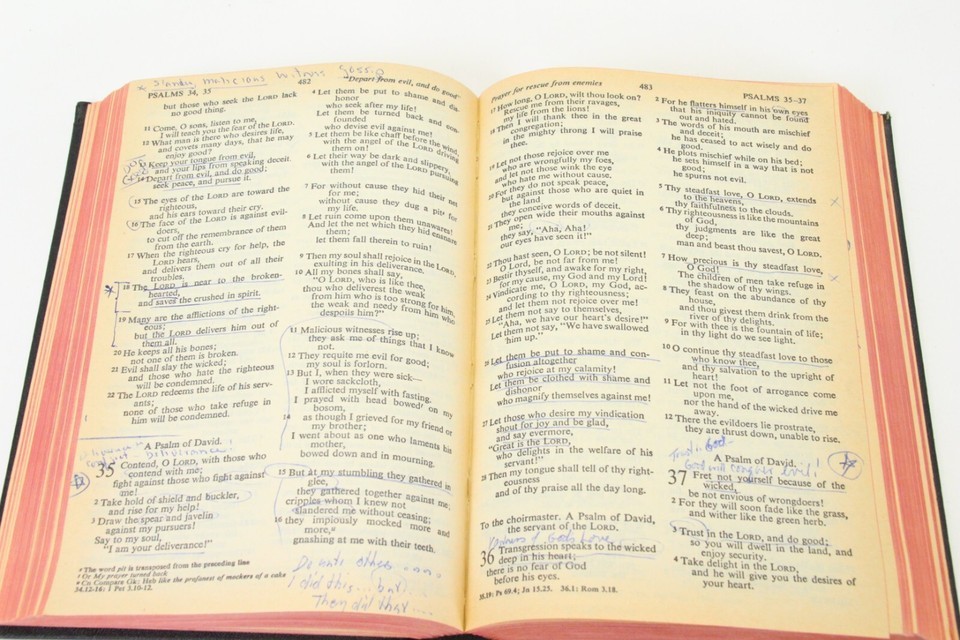 * Slander, malicious
PSALMS 34, 35
482
"Depart from evil, and do good"
but those who seek the LORD lack
no good thing.
11 Come, O sons, listen to me,
I will teach you the fear of the LORD.
12 What man is there who desires life,
and covets many days, that he may
enjoy good?
13 Keep your tongue from evil,
and your lips from speaking deceit.
14 Depart from evil, and do good;
seek peace, and pursue it.
15 The eyes of the LORD are toward the
righteous,
and his ears toward their cry.
16 The face of the LORD is against evil-
doers,
to cut off the remembrance of them
from the earth.
17 When the righteous cry for help, the
LORD hears,
and delivers them out of all their
troubles.
18 The LORD is near to the broken-
hearted,
and saves the crushed in spirit.
19 Many are the afflictions of the right-
eous;
but the LORD delivers him out of
them all.
20 He keeps all his bones;
not one of them is broken.
21 Evil shall slay the wicked;
and those who hate the righteous
will be condemned.
22 The LORD redeems the life of his serv-
ants;
none of those who take refuge in
him will be condemned.
A Psalm of David.
deliverance
35 Contend, O LORD, with those who
contend with me;
fight against those who fight against
me!
2 Take hold of shield and buckler,
and rise for my help!
3 Draw the spear and javelin
against my pursuers!
Say to my soul,
"I am your deliverance!"
4 Let them be put to shame and dis-
honor
who seek after my life!
Let them be turned back and con-
founded
who devise evil against me!
5 Let them be like chaff before the wind,
with the angel of the LORD driving
them on!
6 Let their way be dark and slippery,
with the angel of the LORD pursuing
them!
7 For without cause they hid their net
for me;
without cause they dug a pit for
my life.
8 Let ruin come upon them unawares!
And let the net which they hid ensnare
them;
let them fall therein to ruin!
9 Then my soul shall rejoice in the LORD,
exulting in his deliverance.
10 All my bones shall say,
"O LORD, who is like thee,
thou who deliverest the weak
from him who is too strong for him,
the weak and needy from him who
despoils him?"
11 Malicious witnesses rise up;
they ask me of things that I know
not.
12 They requite me evil for good;
my soul is forlorn.
13 But I, when they were sick—
I wore sackcloth,
I afflicted myself with fasting.
I prayed with head bowed on my
bosom,
14 as though I grieved for my friend or
my brother;
I went about as one who laments his
mother,
bowed down and in mourning.
15 But at my stumbling they gathered in
glee,
they gathered together against me;
cripples whom I knew not
slandered me without ceasing;
16 they impiously mocked more and
more,
gnashing at me with their teeth.
Do unto others ....
I did this... but
They did that....
The word pit is transposed from the preceding line
Or My prayer turned back
Cn Compare Gk: Heb like the profanest of mockers of a cake
34.12-16: 1 Pet 3.10-12.
Prayer for rescue from enemies
483
PSALMS 35–37
17 How long, O LORD, wilt thou look on?
Rescue me from their ravages,
my life from the lions!
18 Then I will thank thee in the great
congregation;
in the mighty throng I will praise
thee.
19 Let not those rejoice over me
who are wrongfully my foes,
and let not those wink the eye
who hate me without cause.
20 For they do not speak peace,
but against those who are quiet in
the land
they conceive words of deceit.
21 They open wide their mouths against
me;
they say, "Aha, Aha!
our eyes have seen it!"
22 Thou hast seen, O LORD; be not silent!
O Lord, be not far from me!
23 Bestir thyself, and awake for my right,
for my cause, my God and my Lord!
24 Vindicate me, O LORD, my God, ac-
cording to thy righteousness;
and let them not rejoice over me!
25 Let them not say to themselves,
"Aha, we have our heart's desire!"
Let them not say, "We have swallowed
him up."
26 Let them be put to shame and con-
fusion altogether
who rejoice at my calamity!
Let them be clothed with shame and
dishonor
who magnify themselves against me!
27 Let those who desire my vindication
shout for joy and be glad,
and say evermore,
"Great is the LORD,
who delights in the welfare of his
servant!"
28 Then my tongue shall tell of thy right-
eousness
and of thy praise all the day long.
To the choirmaster. A Psalm of David,
the servant of the LORD.
God's Love
36 Transgression speaks to the wicked
deep in his heart;
there is no fear of God
before his eyes.
35.19: Ps 69.4; Jn 15.25. 36.1: Rom 3.18.
2 For he flatters himself in his own eyes
that his iniquity cannot be found
out and hated.
3 The words of his mouth are mischief
and deceit;
he has ceased to act wisely and do
good.
4 He plots mischief while on his bed;
he sets himself in a way that is not
good;
he spurns not evil.
5 Thy steadfast love, O LORD, extends
to the heavens,
thy faithfulness to the clouds.
6 Thy righteousness is like the mountains
of God,
thy judgments are like the great
deep;
man and beast thou savest, O LORD.
7 How precious is thy steadfast love,
O God!
The children of men take refuge in
the shadow of thy wings.
8 They feast on the abundance of thy
house,
and thou givest them drink from the
river of thy delights.
9 For with thee is the fountain of life;
in thy light do we see light.
10 O continue thy steadfast love to those
who know thee,
and thy salvation to the upright of
heart!
11 Let not the foot of arrogance come
upon me,
nor the hand of the wicked drive me
away.
12 There the evildoers lie prostrate,
they are thrust down, unable to rise.
Trust in God-
God will conquer evil!
A Psalm of David.
37 Fret not yourself because of the
wicked,
be not envious of wrongdoers!
2 For they will soon fade like the grass,
and wither like the green herb.
3 Trust in the LORD, and do good;
so you will dwell in the land, and
enjoy security.
4 Take delight in the LORD,
and he will give you the desires of
your heart.